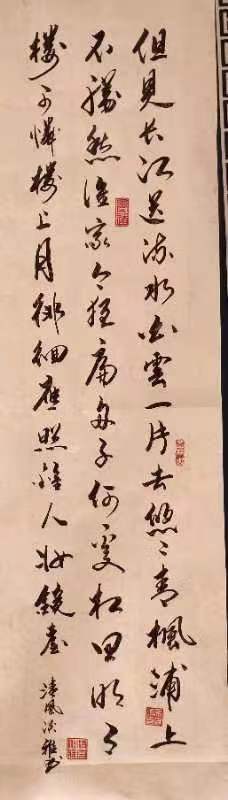 但見长江送流水白雲一片去悠〻青楓浦上
不勝愁谁家今夜扁舟子何處相思明月
樓可憐樓上月徘徊應照離人妝鏡臺
清風淡雅书